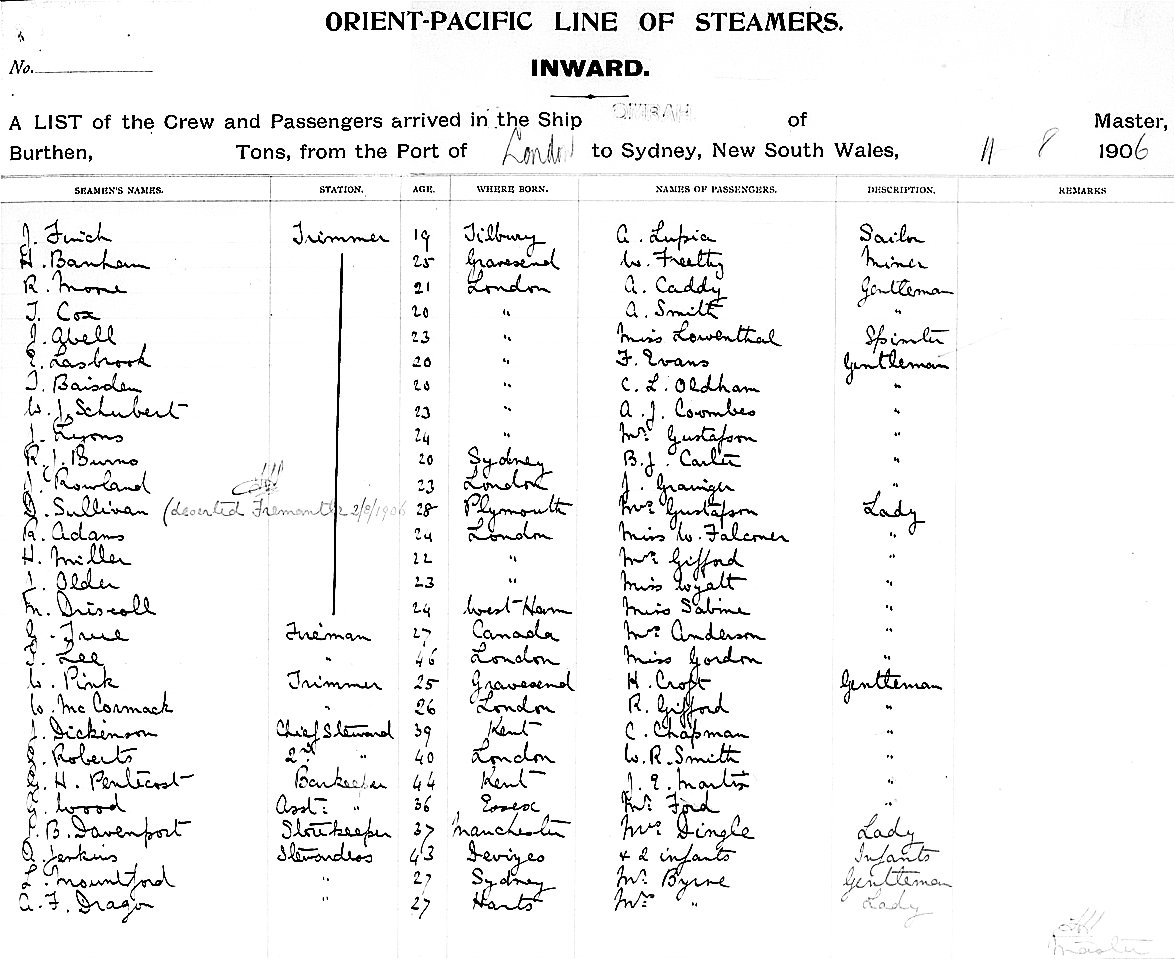 ORIENT-PACIFIC LINE OF STEAMERS.
No.
INWARD.
A LIST of the Crew and Passengers arrived in the Ship OMRAH of Master,
Burthen, Tons, from the Port of London to Sydney, New South Wales, 11 8 1906
SEAMEN'S NAMES. STATION. AGE. WHERE BORN. NAMES OF PASSENGERS. DESCRIPTION. REMARKS
J. Finch Trimmer 19 Tilbury A. Lupia Sailor
H. Banham 25 Gravesend W. Freethy Miner
R. Moore 21 London A. Caddy Gentleman
T. Cox 20 " A. Smith "
J. Abell 23 " Miss Lowenthal Spinster
E. Lasbrook 20 " F. Evans Gentleman
T. Baisden 20 " C. L. Oldham "
W. J. Schubert 23 " A. J. Coombes "
J. Lyons 24 " Mr. Gustafson "
R. J. Burns 20 Sydney B. J. Carter "
J. Rowland 23 London J. Grainger "
D. Sullivan (deserted Fremantle 2/8/1906 28 Plymouth Mrs Gustafson Lady
R. Adams 24 London Miss W. Falconer "
H. Miller 22 " Mrs Gifford "
J. Older 23 " Miss Wyatt "
M. Driscoll 24 West Ham Miss Sabine "
G. True Fireman 27 Canada Mrs Anderson "
Lee " 46 London Miss Gordon "
W. Pink Trimmer 25 Gravesend H. Croft Gentleman
W. McCormack " 26 London R. Gifford "
J. Dickinson Chief Steward 39 Kent C. Chapman "
Roberts 2nd " 40 London W. R. Smith "
G. H. Pentecost Barkeeper 44 Kent J. E. Martin "
G. Wood Asst: " 36 Essex Mr. Ford "
J. B. Davenport Storekeeper 37 Manchester Mrs Dingle Lady
A. Jenkins Stewardess 43 Devizes + 2 infants Infants
L. Mountford " 27 Sydney Mr. Byrne Gentleman
A. F. Dragon " 27 Harts Mrs " Lady
Master